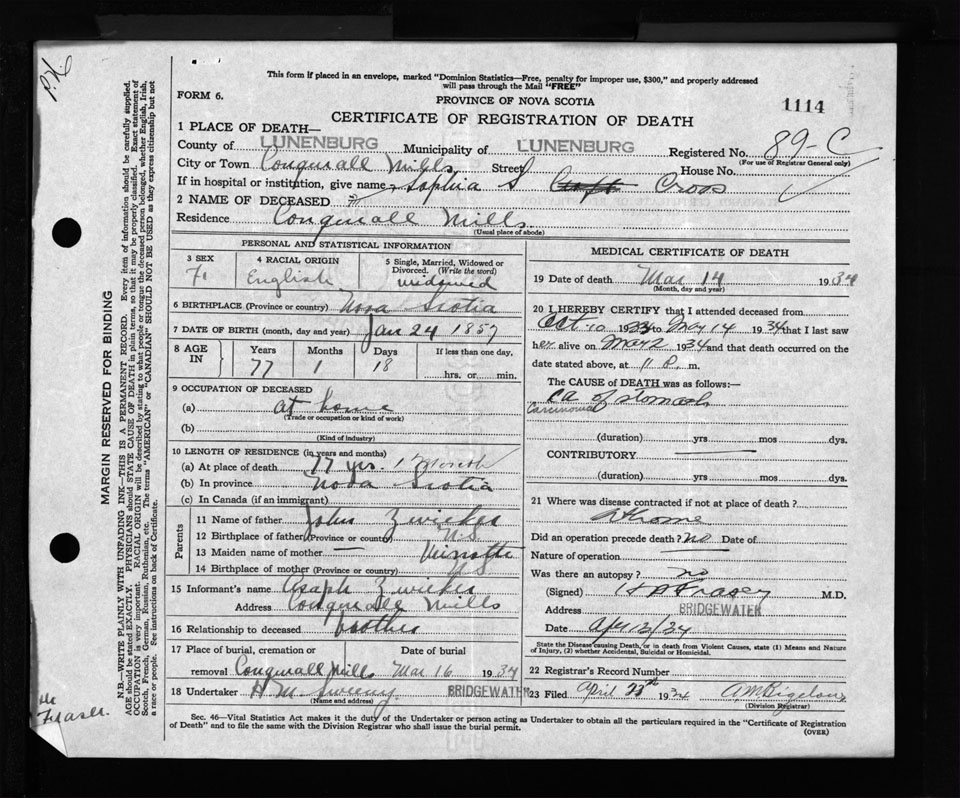 This form if placed in an envelope, marked "Dominion Statistics—Free, penalty for improper use, $300," and properly addressed
will pass through the Mail "FREE"
FORM 6.
PROVINCE OF NOVA SCOTIA
1114
CERTIFICATE OF REGISTRATION OF DEATH
1 PLACE OF DEATH—
County of LUNENBURG Municipality of LUNENBURG Registered No. 89-C
(For use of Registrar General only)
City or Town Conquerall Mills Street House No.
If in hospital or institution, give name Sophia S Cross
2 NAME OF DECEASED
Residence Conquerall Mills
(Usual place of abode)
PERSONAL AND STATISTICAL INFORMATION
3 SEX F. 4 RACIAL ORIGIN English 5 Single, Married, Widowed or Divorced. (Write the word) widowed
6 BIRTHPLACE (Province or country) Nova Scotia
7 DATE OF BIRTH (month, day and year) Jan 24 1857
8 AGE IN Years 77 Months 1 Days 18 If less than one day, hrs. or min.
9 OCCUPATION OF DECEASED
(a) at home
(Trade or occupation or kind of work)
(b)
(Kind of industry)
10 LENGTH OF RESIDENCE (in years and months)
(a) At place of death 77 yrs. 1 Month
(b) In province Nova Scotia
(c) In Canada (if an immigrant)
Parents
11 Name of father John Zwicker
12 Birthplace of father (Province or country) N.S.
13 Maiden name of mother —
14 Birthplace of mother (Province or country) N S
15 Informant's name Asaph Zwicker
Address Conquerall Mills
16 Relationship to deceased brother
17 Place of burial, cremation or removal Conquerall Mills Date of burial Mar 16 1934
18 Undertaker H M Sweeny BRIDGEWATER
(Name and address)
MEDICAL CERTIFICATE OF DEATH
19 Date of death Mar 14 1934
(Month, day and year)
20 I HEREBY CERTIFY that I attended deceased from
Oct 10 1933 to Mar 14 1934 that I last saw
her alive on Mar 2 1934 and that death occurred on the
date stated above, at 11 P. m.
The CAUSE of DEATH was as follows:—
ca of stomach
Carcinoma
(duration) yrs mos dys.
CONTRIBUTORY
(duration) yrs mos dys.
21 Where was disease contracted if not at place of death?
at home
Did an operation precede death? No Date of
Nature of operation
Was there an autopsy? no
(Signed) Fraser M.D.
Address BRIDGEWATER
Date Apr 12/34
State the Disease causing Death, or in death from Violent Causes, state (1) Means and Nature of Injury, (2) whether Accidental, Suicidal or Homicidal.
22 Registrar's Record Number
23 Filed April 23th 1934 A M Bigelow
(Division Registrar)
Sec. 46—Vital Statistics Act makes it the duty of the Undertaker or person acting as Undertaker to obtain all the particulars required in the "Certificate of Registration
of Death" and to file the same with the Division Registrar who shall issue the burial permit.
(OVER)
MARGIN RESERVED FOR BINDING
N.B.—WRITE PLAINLY WITH UNFADING INK—THIS IS A PERMANENT RECORD. Every item of information should be carefully supplied.
AGE should be stated EXACTLY. PHYSICIANS should STATE CAUSE OF DEATH in plain terms, so that it may be properly classified. Exact statement of
OCCUPATION is very important. RACIAL ORIGIN will be described by stating to what people or tongue the deceased person belonged, whether English, Irish,
Scotch, French, German, Russian, Ruthenian, etc. The terms "AMERICAN" or "CANADIAN" SHOULD NOT BE USED as they express citizenship but not
a race or people. See instructions on back of Certificate.
Fraser.